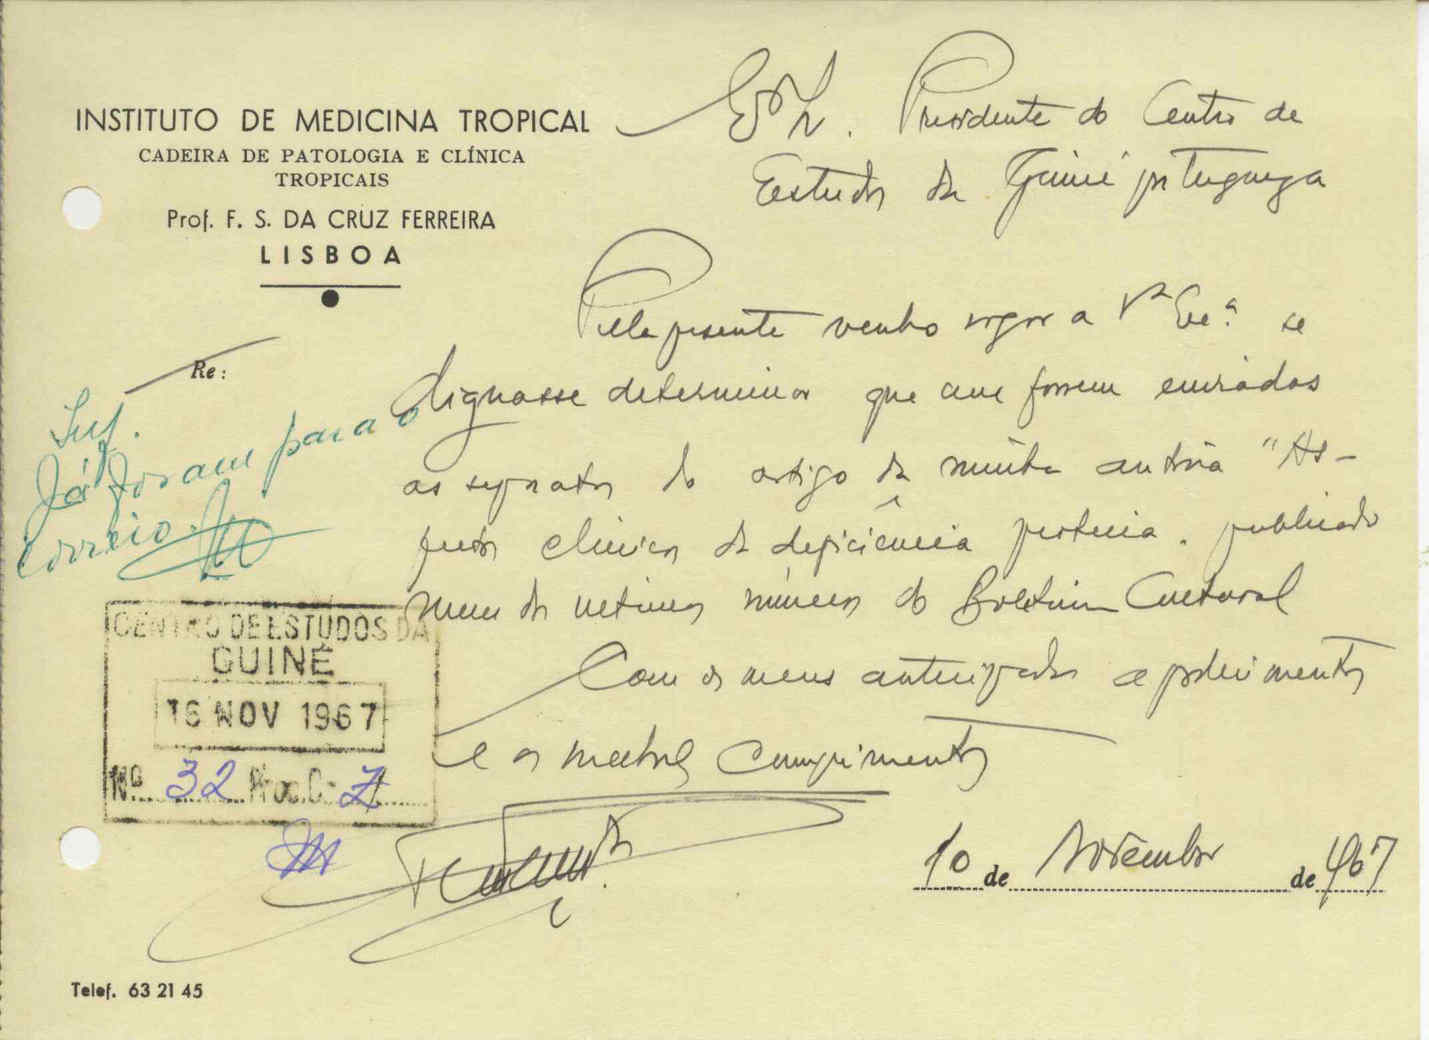 INSTITUTO DE MEDICINA TROPICAL
CADEIRA DE PATOLOGIA E CLÍNICA
TROPICAIS
Prof. F. S. DA CRUZ FERREIRA
LISBOA
Presidente do Centro de
Estudos da Guiné portuguesa
Pelo presente venho rogar a Vª Exª. se
dignasse determinar que me fossem enviadas
as separatas do artigo da minha autoria "As-
pectos clínicos da deficiência proteica. publicado
num dos ultimos números do Boletim Cultural
Com os meus antecipados agradecimentos
e os melhores cumprimentos
10 de Novembro de 967
Re:
Inf.
Já foram para o
correio.
CENTRO DE ESTUDOS DA
GUINÉ
16 NOV 1967
Nº 32 Proc. C- 7
Telef. 63 21 45